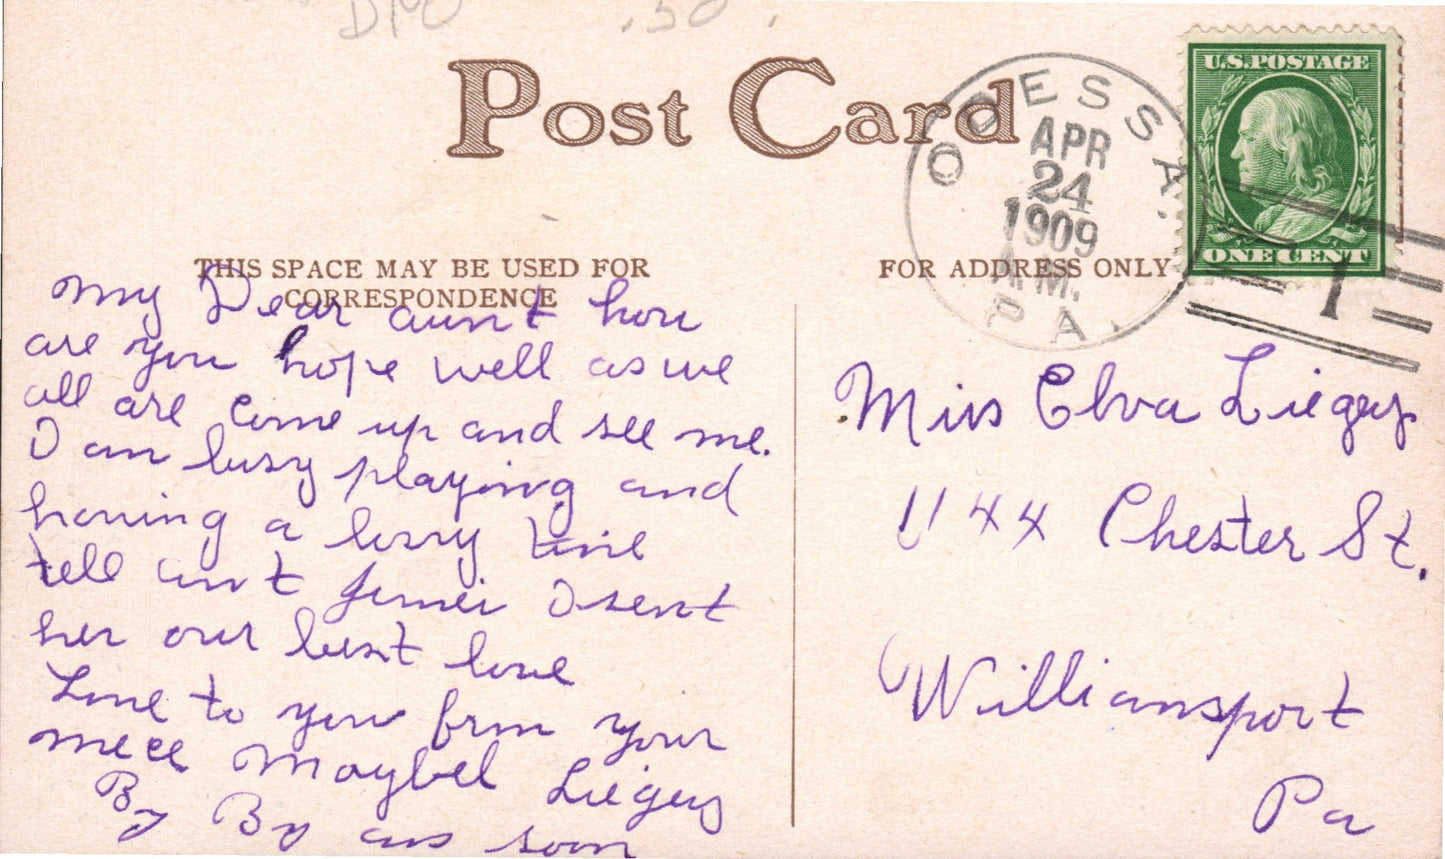 DPO .50.
Post Card
ODESSA
APR
24
1909
A.M.
PA.
U.S. POSTAGE
ONE CENT
1
THIS SPACE MAY BE USED FOR
CORRESPONDENCE
FOR ADDRESS ONLY
My Dear aunt how
are you hope well as we
all are come up and see me.
I am busy playing and
having a busy time
tell aunt I sent
her our best love
Love to you from your
niece Maybel Liegey
By By ans soon
Miss Elva Liegey
1144 Chester St.
Williamsport
Pa